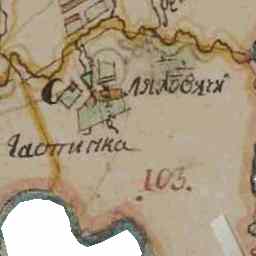 С.
Ляховячи
Частинка
103.